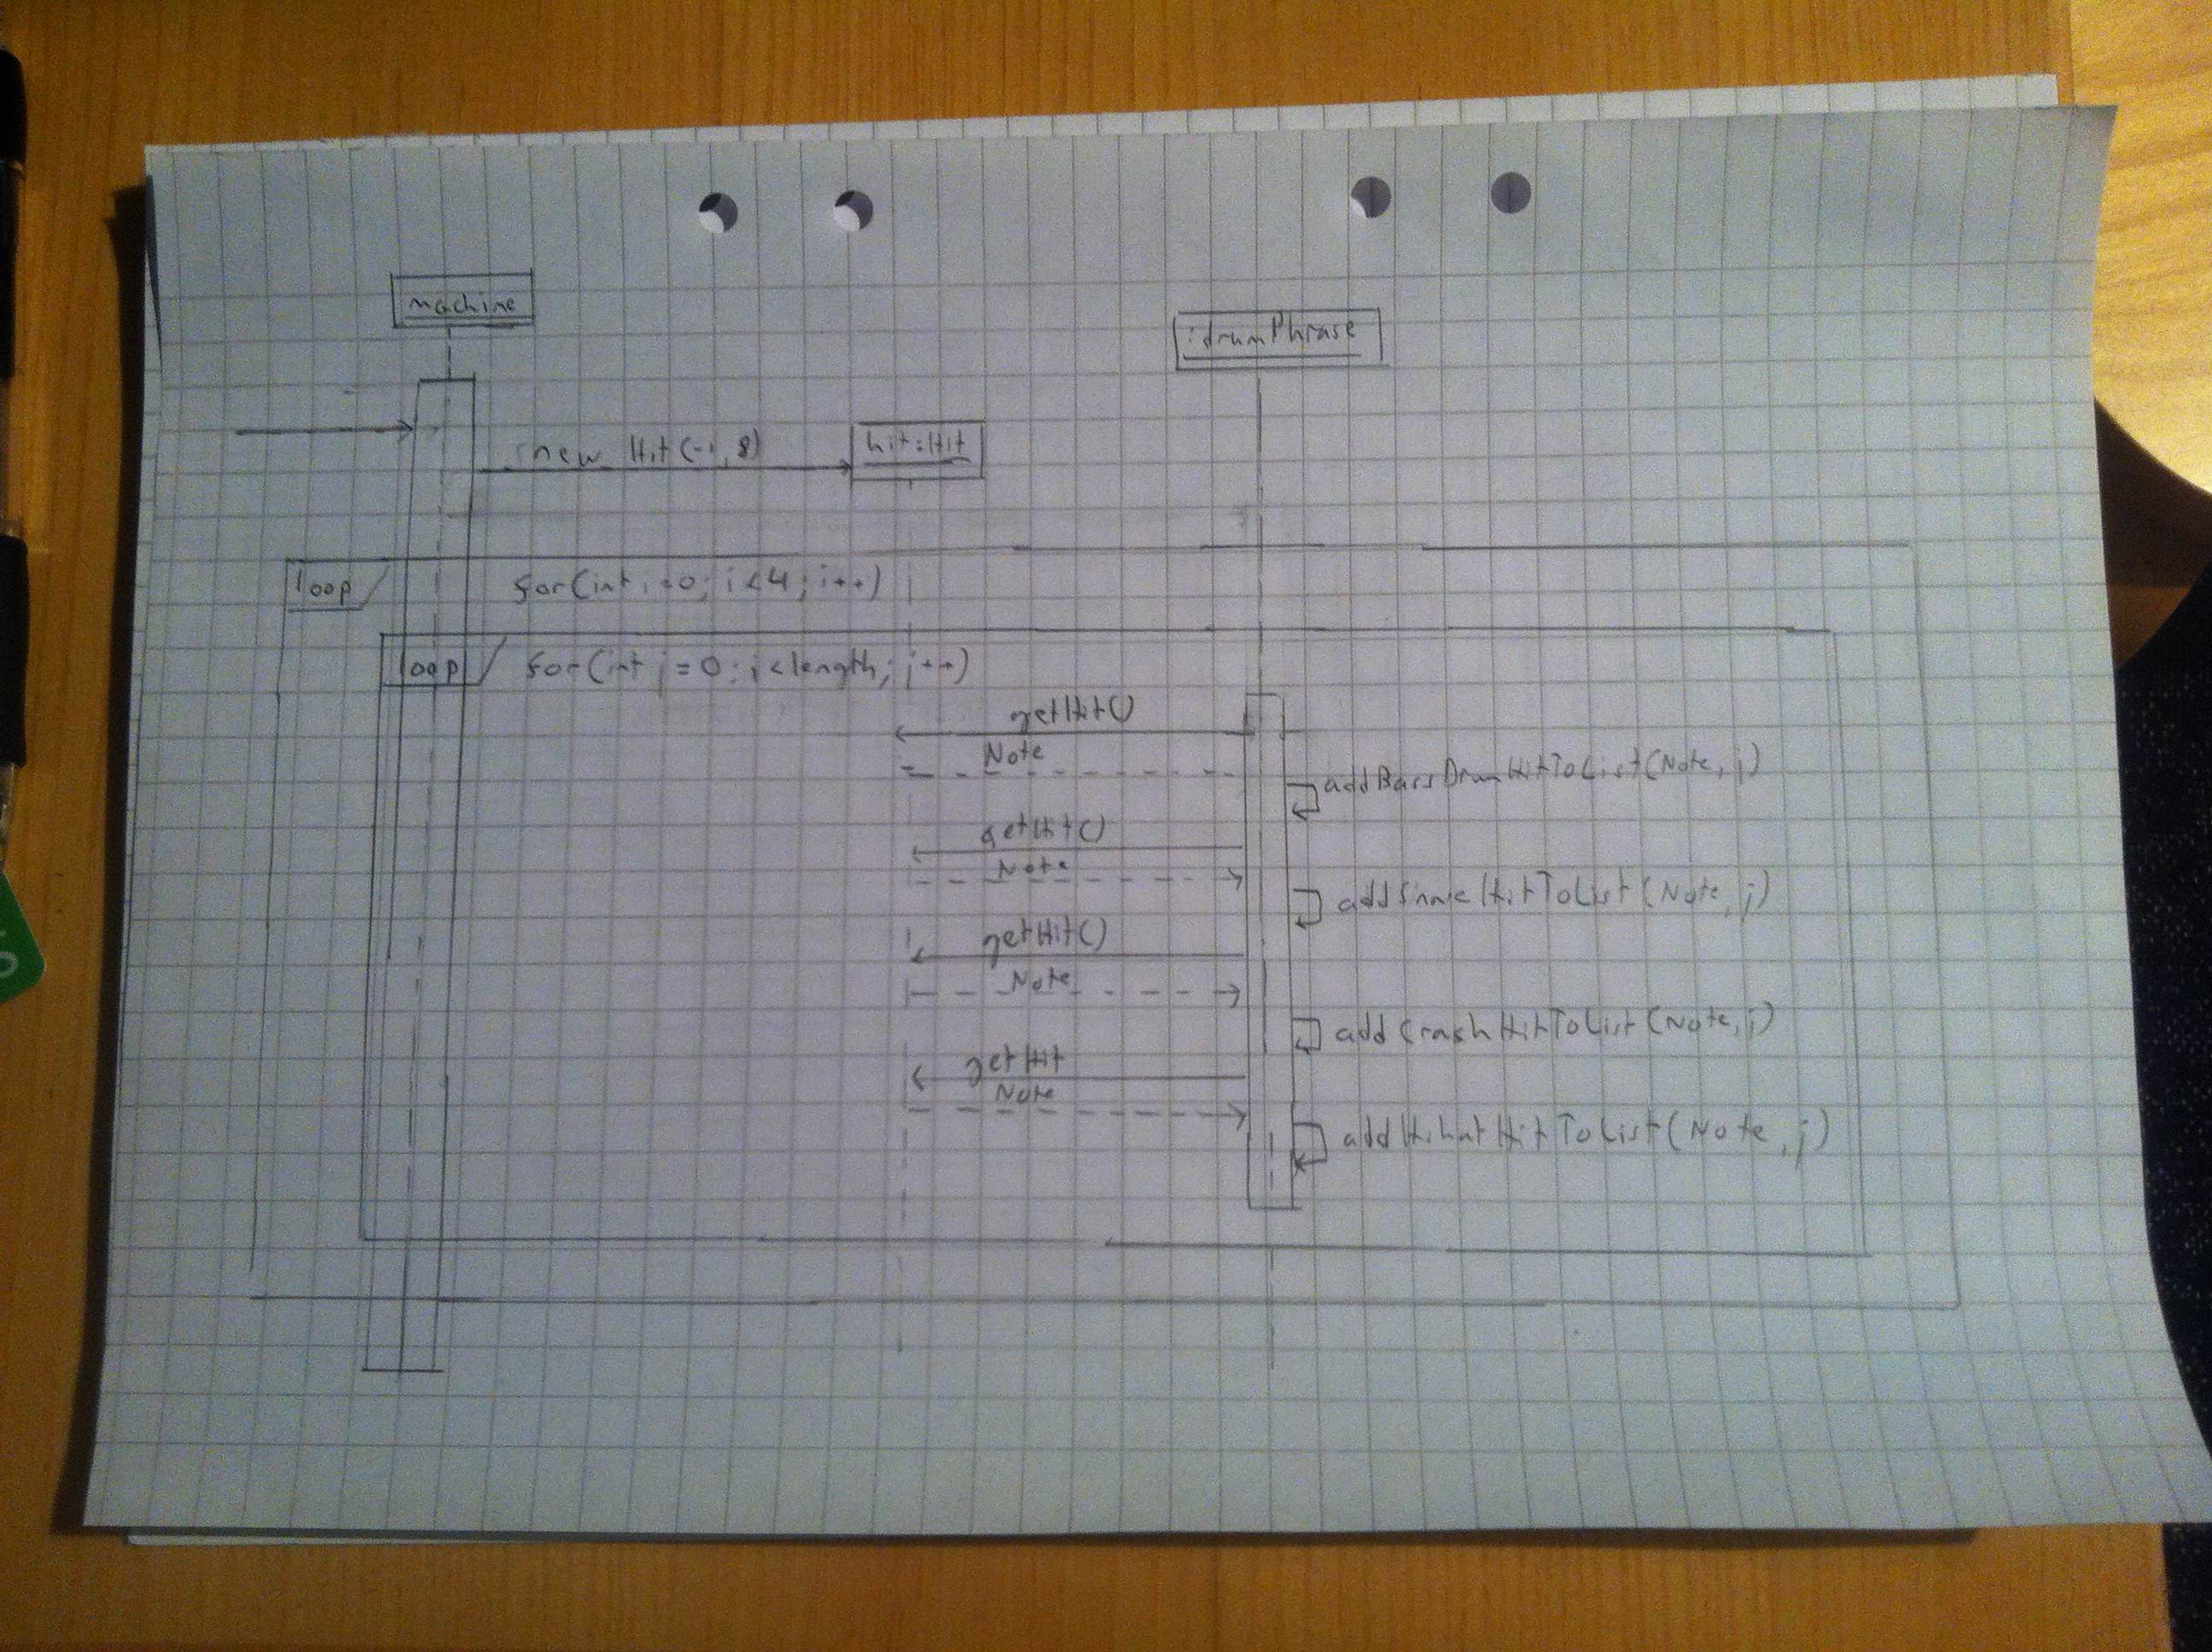 machine
:drumPhrase
new Hit(-1,8)
hit:Hit
loop
for(int i=0; i<4; i++)
loop
for(int j=0; j<length; j++)
getHit()
Note
addBassDrumHitToList(Note, j)
getHit()
Note
addSnareHitToList(Note, j)
getHit()
Note
addCrashHitToList(Note, j)
getHit
Note
addHihatHitToList(Note, j)